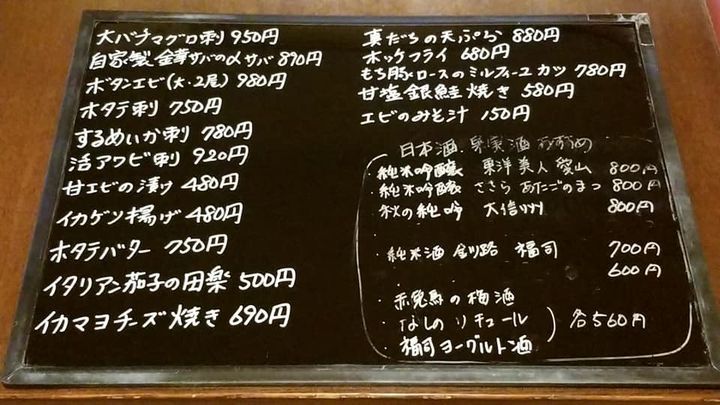 大バチマグロ刺 950円
自家製 金華サバの〆サバ 890円
ボタンエビ(大・2尾) 980円
ホタテ刺 750円
するめいか刺 780円
活アワビ刺 920円
甘エビの漬け 480円
イカゲソ揚げ 480円
ホタテバター 750円
イタリアン茄子の田楽 500円
イカマヨチーズ焼き 690円
真だちの天ぷら 880円
ホッケフライ 680円
もち豚ロースのミルフィーユカツ 780円
甘塩銀鮭焼き 580円
エビのみそ汁 150円
日本酒 家酒 おすすめ
・純米吟醸 東洋美人 愛山 800円
・純米吟醸 ささら あたごのまつ 800円
・秋の純吟 大信州 800円
・純米酒 釧路 福司 700円
600円
・赤兎馬の梅酒
・なしのリキュール
・福司ヨーグルト酒
各560円